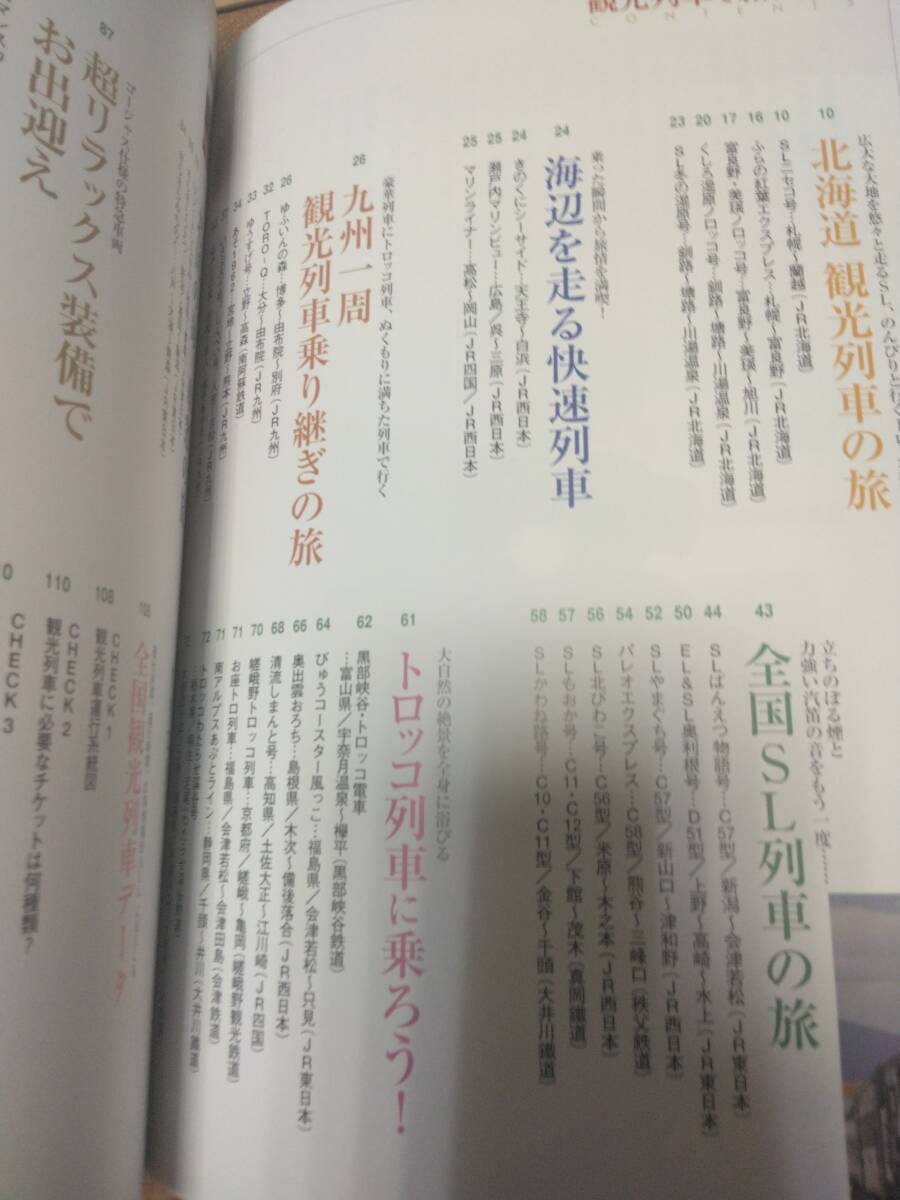 観光列車
10
北海道 観光列車の旅
広大な大地を悠々と走るSL、のんびりと行く
10 SLニセコ号…札幌〜蘭越(JR北海道)
16 ふらの紅葉エクスプレス…札幌〜富良野(JR北海道)
17 富良野・美瑛ノロッコ号…富良野〜美瑛〜旭川(JR北海道)
20 くしろ湿原ノロッコ号…釧路〜塘路〜川湯温泉(JR北海道)
23 SL冬の湿原号…釧路〜塘路〜川湯温泉(JR北海道)
24
海辺を走る快速列車
乗った瞬間から旅情を満喫!
24 きのくにシーサイド…天王寺〜白浜(JR西日本)
25 瀬戸内マリンビュー…広島/呉〜三原(JR西日本)
25 マリンライナー…高松〜岡山(JR四国/JR西日本)
26
九州一周
観光列車乗り継ぎの旅
豪華列車にトロッコ列車、ぬくもりに満ちた列車で行く
26 ゆふいんの森…博多〜由布院〜別府(JR九州)
32 TORO-Q…大分〜由布院(JR九州)
33 ゆうすげ号…立野〜高森(南阿蘇鉄道)
34 あそ1962…宮地〜立野〜熊本(JR九州)
43
全国SL列車の旅
立ちのぼる煙と
力強い汽笛の音をもう一度……
44 SLばんえつ物語号…C57型/新潟〜会津若松(JR東日本)
50 EL&SL奥利根号…D51型/上野〜高崎〜水上(JR東日本)
52 SLやまぐち号…C57型/新山口〜津和野(JR西日本)
54 パレオエクスプレス…C58型/熊谷〜三峰口(秩父鉄道)
56 SL北びわこ号…C56型/米原〜木之本(JR西日本)
57 SLもおか号…C11・C12型/下館〜茂木(真岡鐵道)
58 SLかわね路号…C10・C11型/金谷〜千頭(大井川鐵道)
61
トロッコ列車に乗ろう!
大自然の絶景を全身に浴びる
62 黒部峡谷・トロッコ電車
…富山県/宇奈月温泉〜欅平(黒部峡谷鉄道)
64 びゅうコースター風っこ…福島県/会津若松〜只見(JR東日本)
66 奥出雲おろち…島根県/木次〜備後落合(JR西日本)
68 清流しまんと号…高知県/土佐大正〜江川崎(JR四国)
70 嵯峨野トロッコ列車…京都府/嵯峨〜亀岡(嵯峨野観光鉄道)
71 お座トロ列車…福島県/会津若松〜会津田島(会津鉄道)
71 南アルプスあぷとライン…静岡県/千頭〜井川(大井川鐵道)
72 トロッコわたらせ渓谷号
87
超リラックス装備で
お出迎え
ゴージャス仕様の特急車両
108
全国観光列車データ
108 CHECK 1
観光列車運行系統図
110 CHECK 2
観光列車に必要なチケットは何種類?
CHECK 3